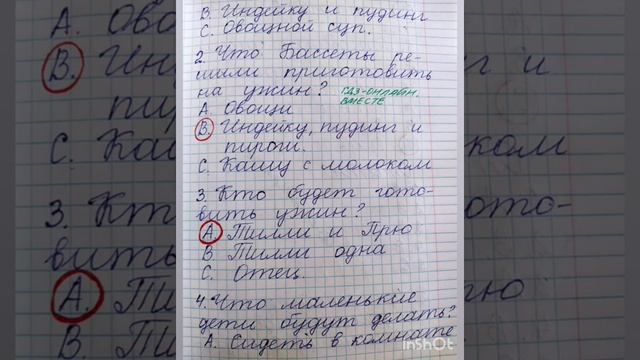 В. Индейку и пудинг
С. Овощной суп.
2. Что Бассеты ре-
шили приготовить
на ужин?
ГДЗ-ОНЛАЙН.
ВМЕСТЕ
А. Овощи
В. Индейку, пудинг и
пироги.
С. Кашу с молоком
3. Кто будет гото-
вить ужин?
А. Тилли и Прю
В Тилли одна
С. Отец.
4. Что маленькие
дети будут делать?
А. Сидеть в комнате
InShot